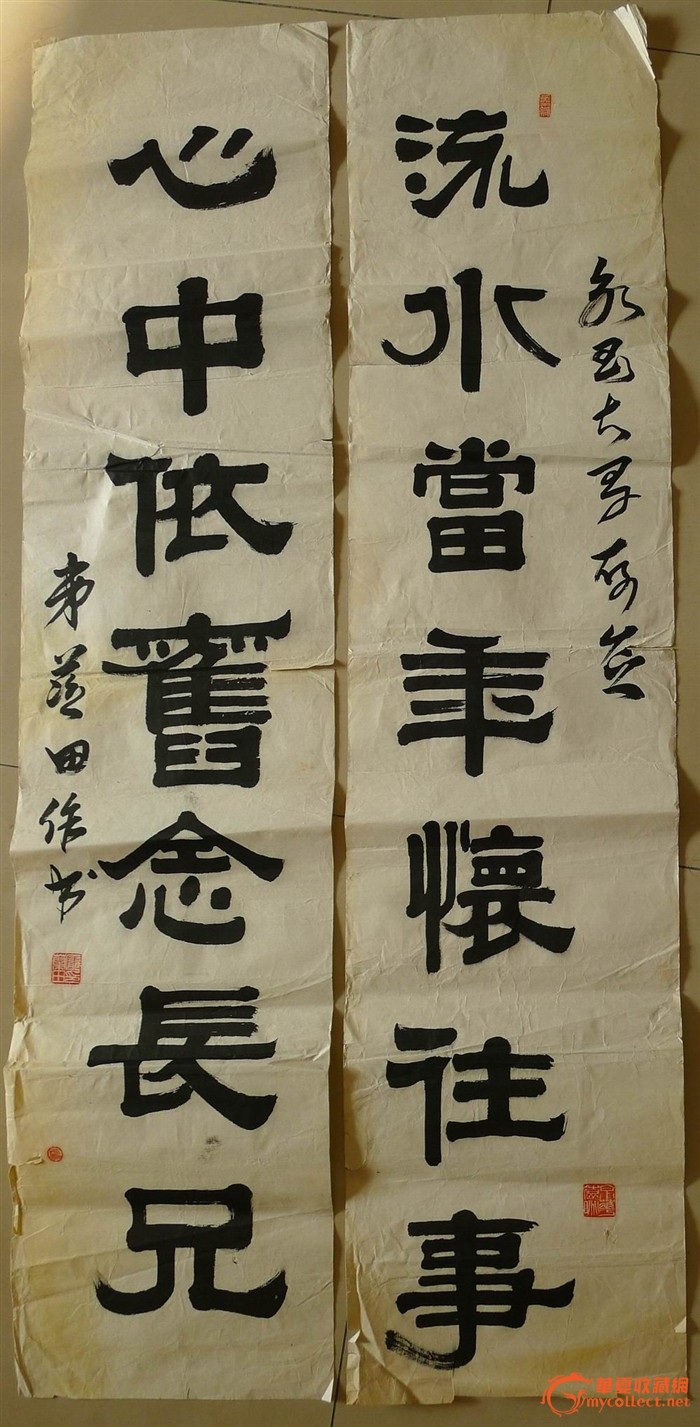 流水當年懷往事
永玉大哥存念
心中依舊念長兄
弟蓝田作书
華豐收藏網
mycollect.net